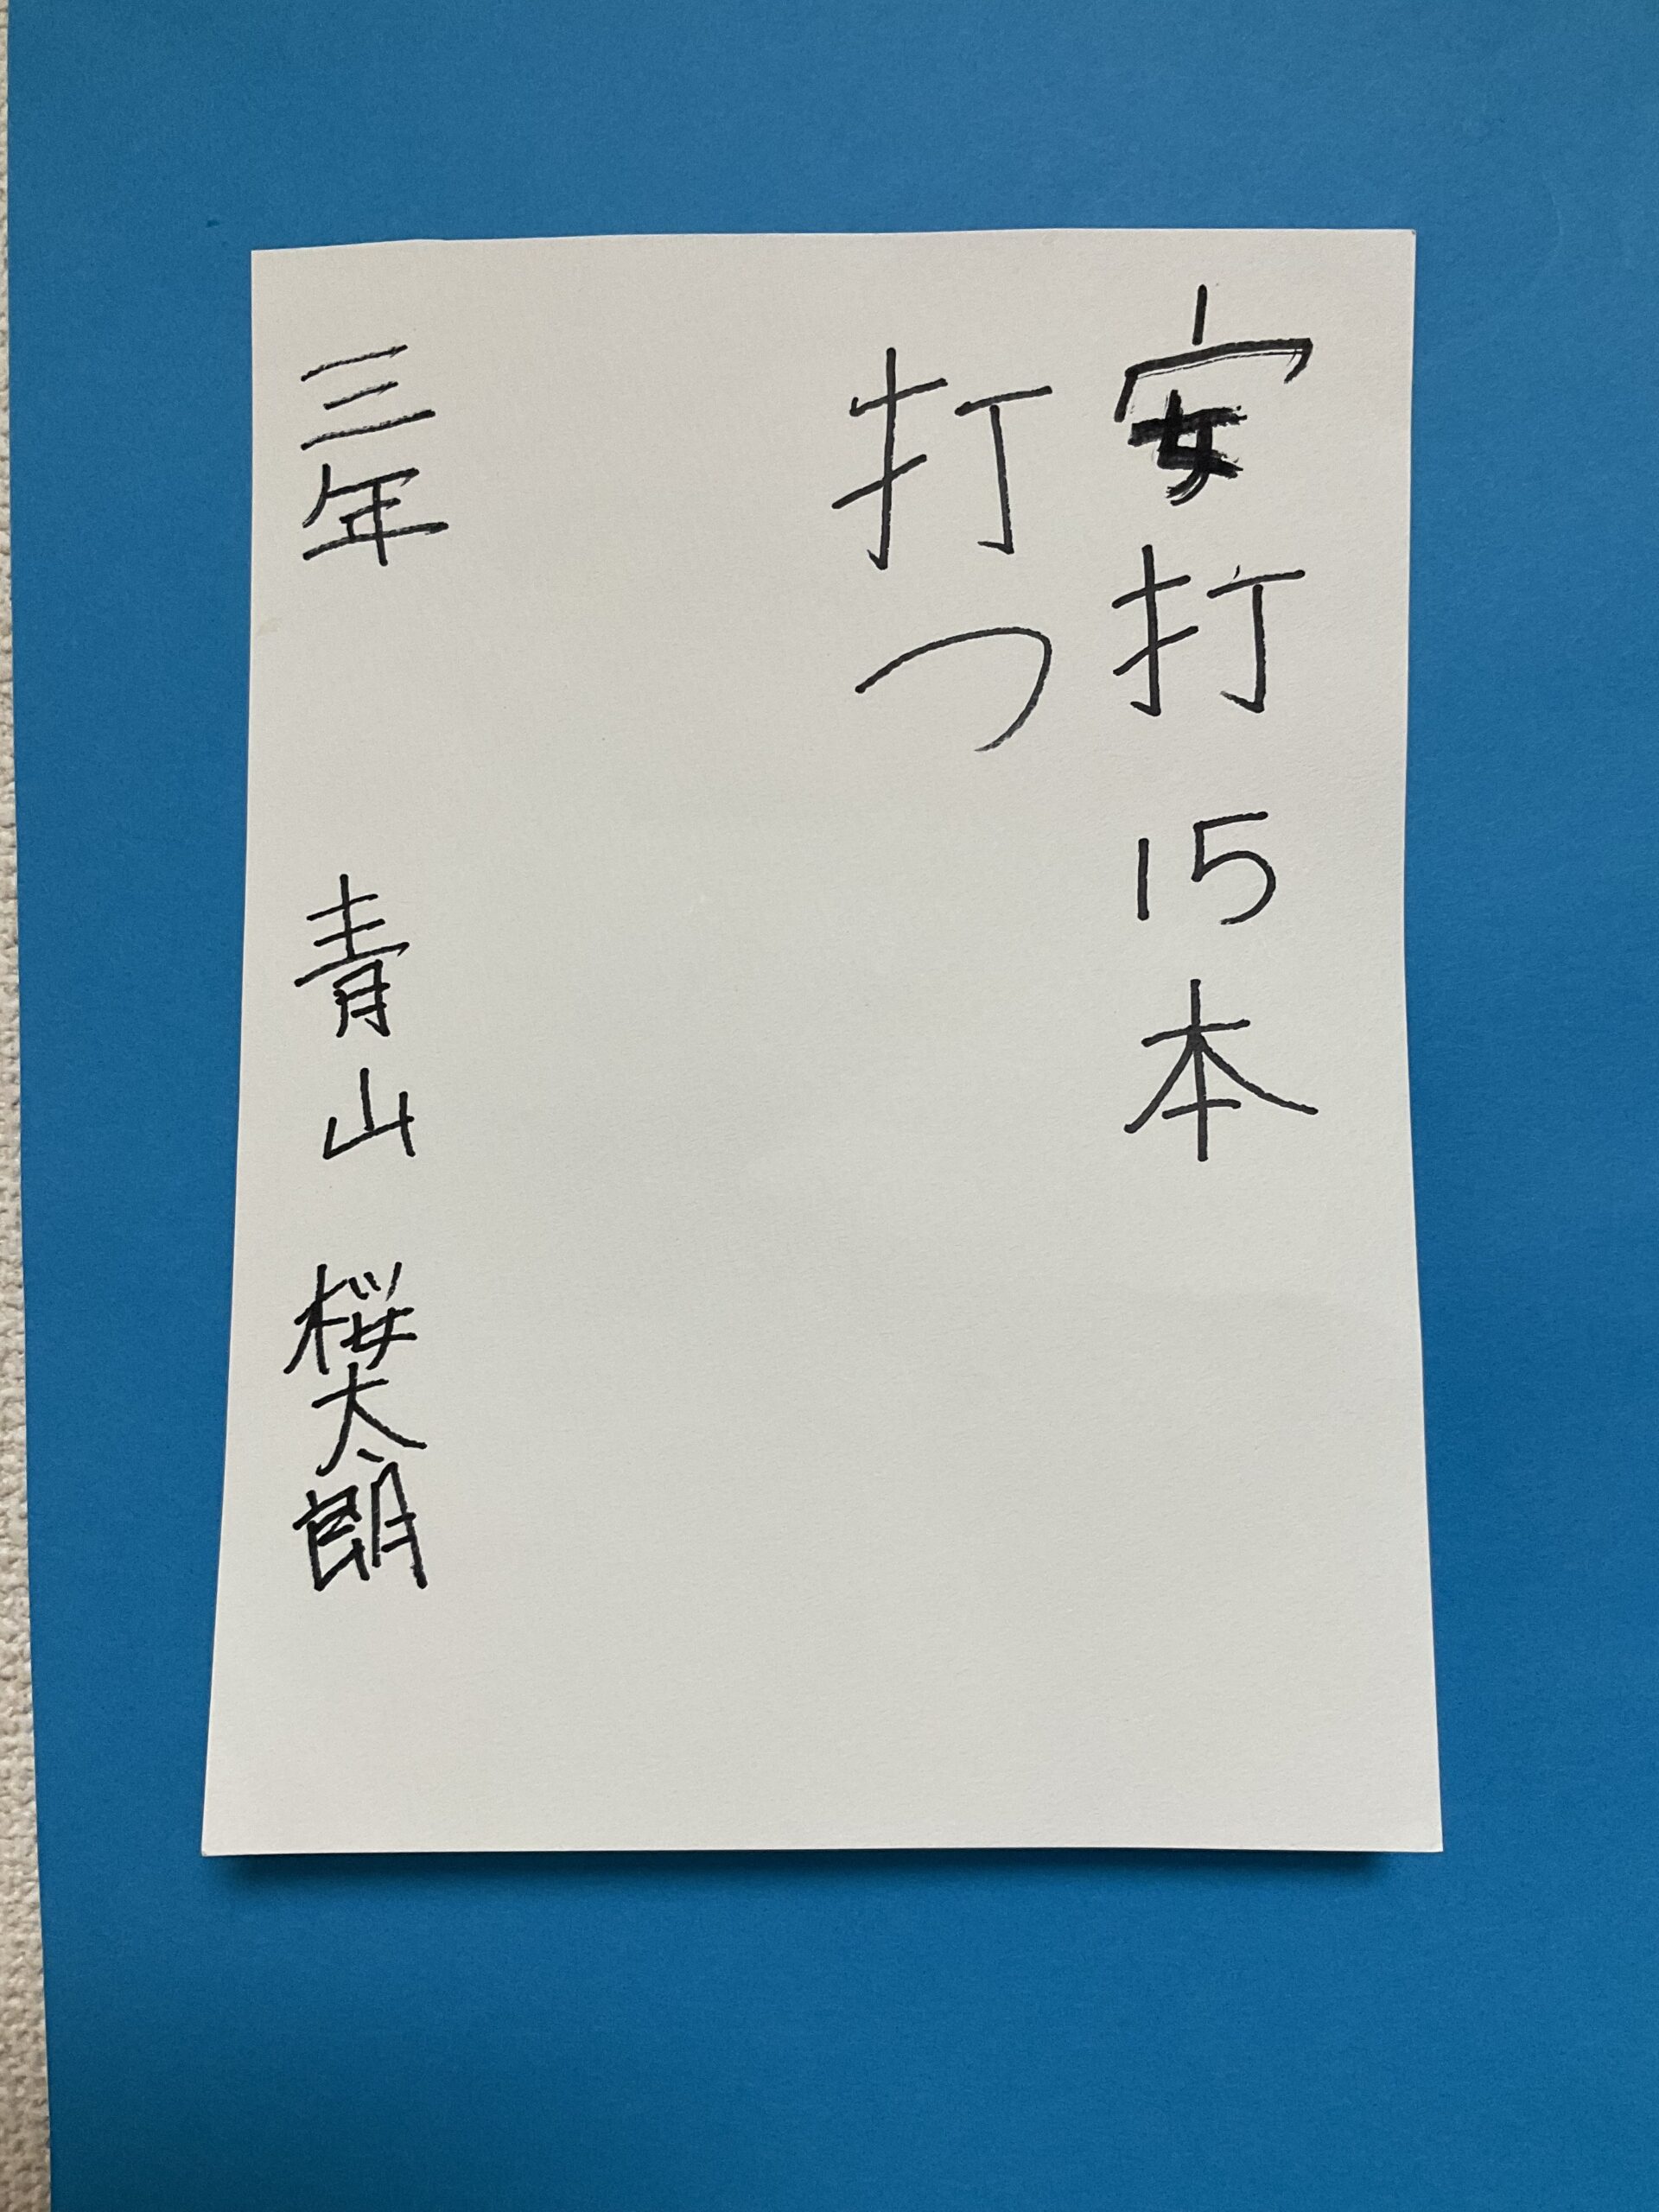 安打15本
打つ
三年 青山 桜太朗